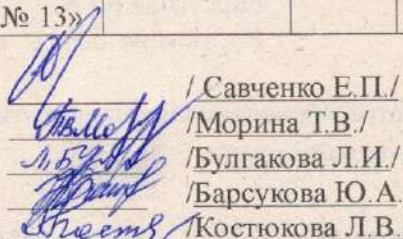 № 13»
/ Савченко Е.П./
/Морина Т.В./
/Булгакова Л.И./
/Барсукова Ю.А.
/Костюкова Л.В.